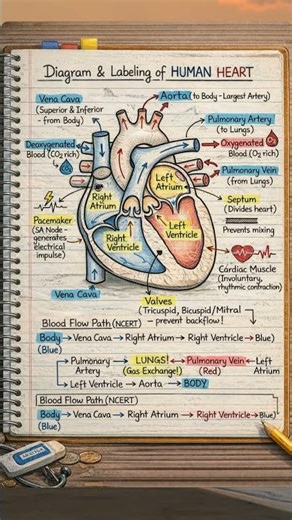 Diagram & Labeling of HUMAN HEART
Vena Cava
(Superior & Inferior
- from Body)
Aorta (to Body - Largest Artery)
Pulmonary Artery
(to Lungs)
Deoxygenated
Blood (CO₂ rich)
Oxygenated
Blood (O₂ rich)
Pulmonary Vein
(from Lungs)
Left
Atrium
Right
Atrium
Septum
(Divides heart)
Pacemaker
(SA Node -
generates
electrical
impulse)
Right
Ventricle
Left
Ventricle
Prevents mixing
Cardiac Muscle
(Involuntary,
rhythmic contraction)
Vena Cava
Valves
(Tricuspid, Bicuspid/Mitral
- prevent backflow!)
Blood Flow Path (NCERT)
Body → Vena Cava → Right Atrium → Right Ventricle → Blue)
(Blue)
Pulmonary Artery → LUNGS! (Gas Exchange!) ← Pulmonary Vein (Red) ← Left Atrium
→ Left Ventricle → Aorta → BODY
Blood Flow Path (NCERT)
Body → Vena Cava → Right Atrium → Right Ventricle → Blue)
(Blue)